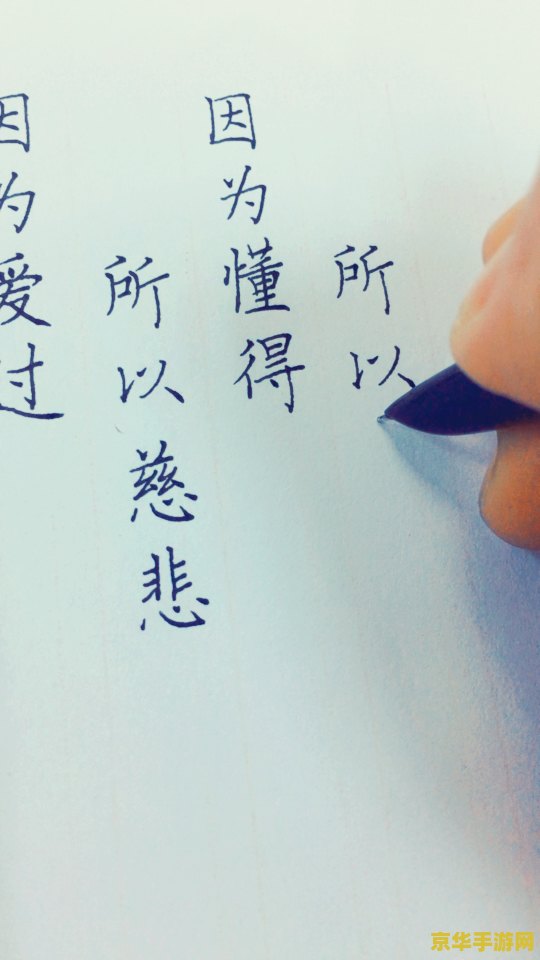 因为爱过
所以慈悲
因为懂得
所以
京华手游网